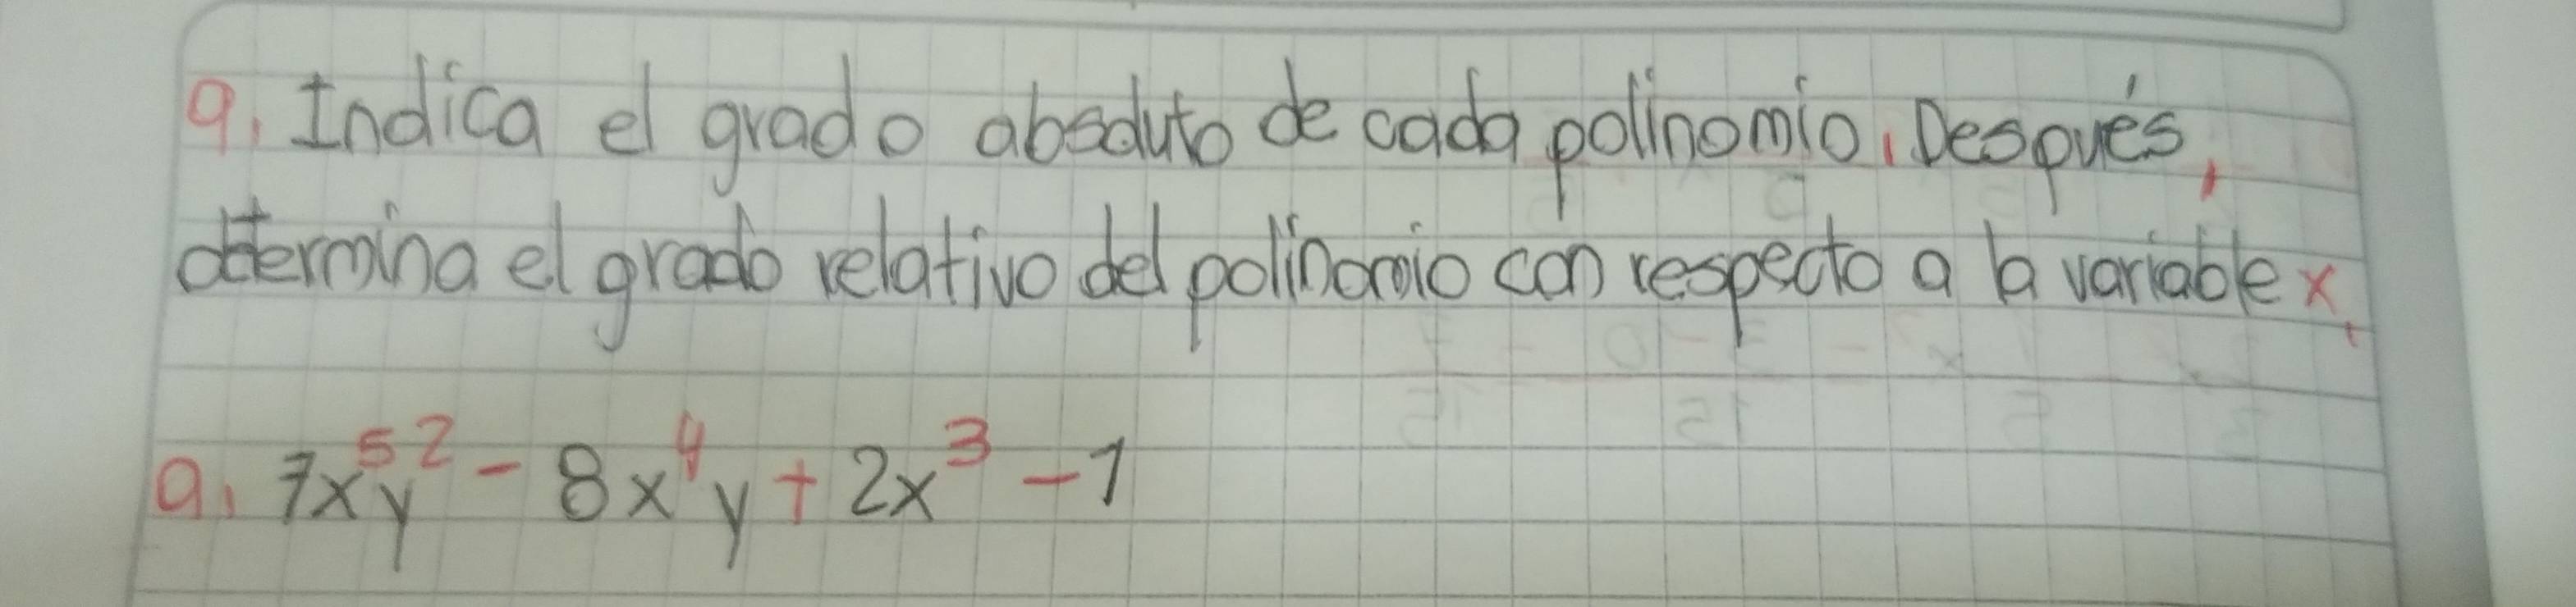 9. Indica el grado absoluto de cada polinomio. Después,
determina el grado relativo del polinomio con respecto a la variable x.
a. 7x⁵y² - 8x⁴y + 2x³ - 1